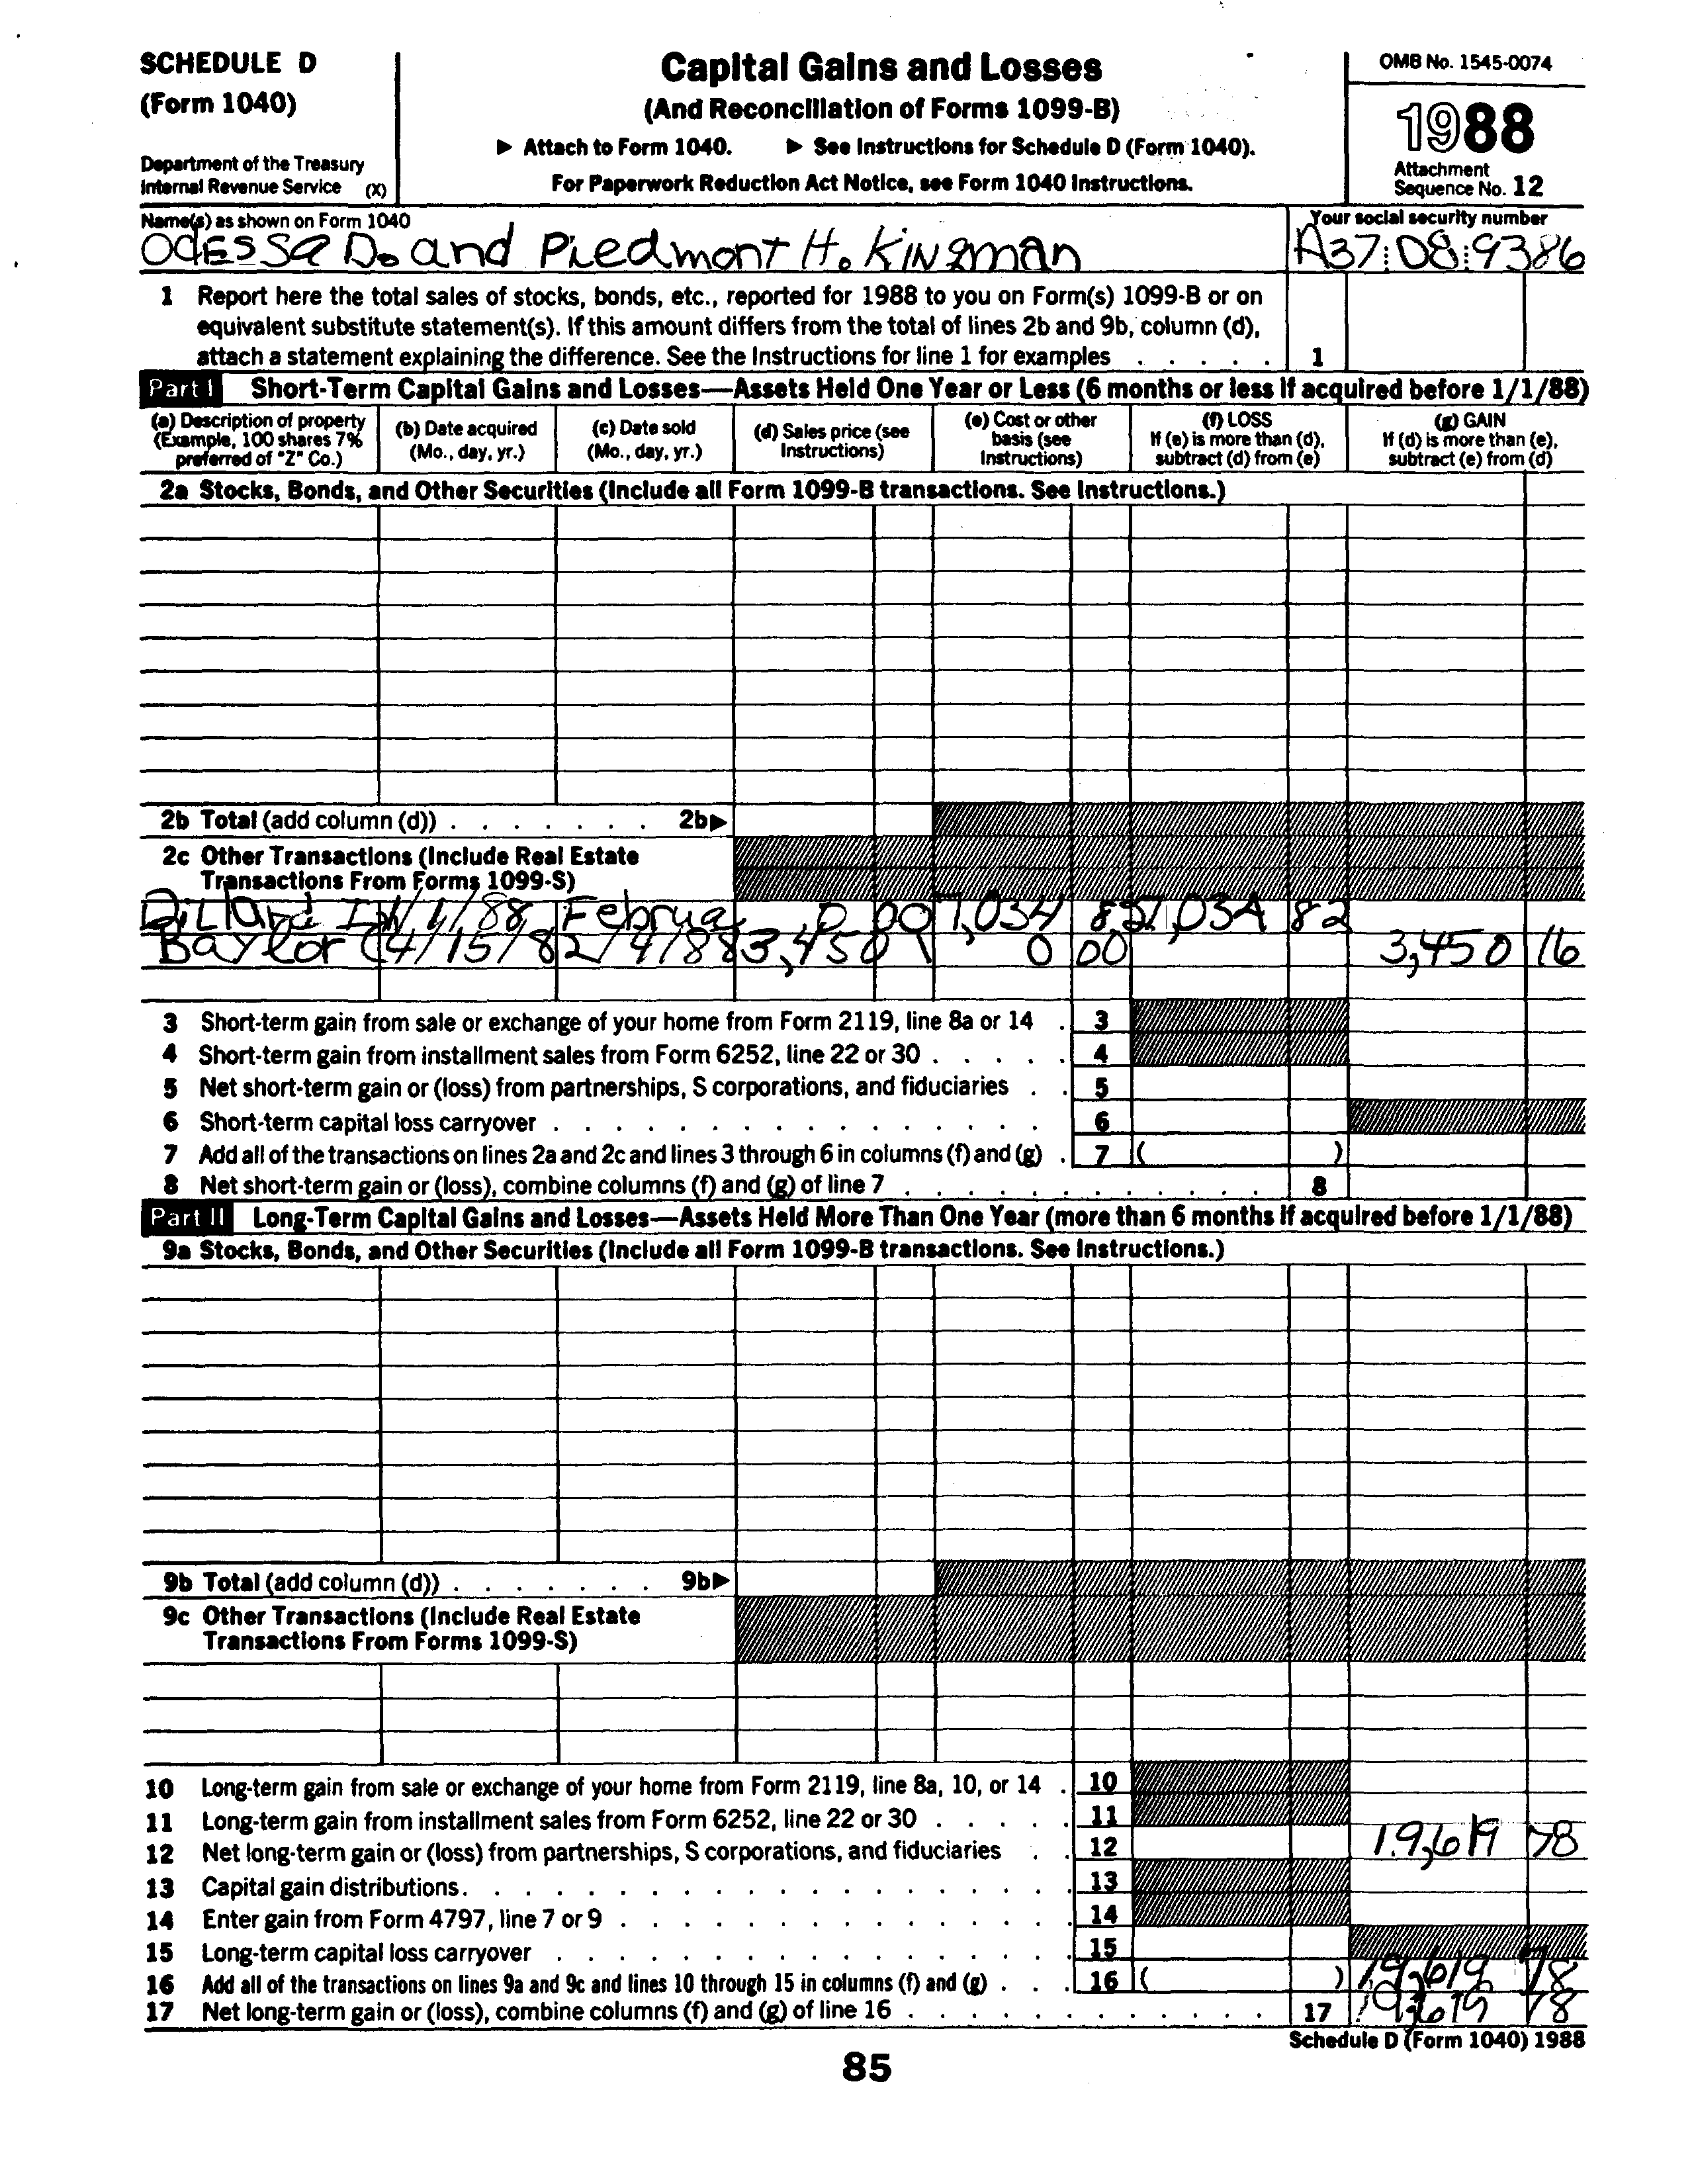 SCHEDULE D
(Form 1040)
Department of the Treasury
Internal Revenue Service (X)
Capital Gains and Losses
(And Reconciliation of Forms 1099-B)
▶ Attach to Form 1040. ▶ See Instructions for Schedule D (Form 1040).
For Paperwork Reduction Act Notice, see Form 1040 Instructions.
OMB No. 1545-0074
1988
Attachment
Sequence No. 12
Name(s) as shown on Form 1040
Your social security number
OdESSa D. and Piedmont H. Kingman
A37:08:9386
1 Report here the total sales of stocks, bonds, etc., reported for 1988 to you on Form(s) 1099-B or on
equivalent substitute statement(s). If this amount differs from the total of lines 2b and 9b, column (d),
attach a statement explaining the difference. See the Instructions for line 1 for examples . . . . . 1
Part I Short-Term Capital Gains and Losses—Assets Held One Year or Less (6 months or less if acquired before 1/1/88)
(a) Description of property
(Example, 100 shares 7%
preferred of "Z" Co.)
(b) Date acquired
(Mo., day, yr.)
(c) Date sold
(Mo., day, yr.)
(d) Sales price (see
Instructions)
(e) Cost or other
basis (see
Instructions)
(f) LOSS
If (e) is more than (d),
subtract (d) from (e)
(g) GAIN
If (d) is more than (e),
subtract (e) from (d)
2a Stocks, Bonds, and Other Securities (Include all Form 1099-B transactions. See Instructions.)
2b Total (add column (d)) . . . . . . . 2b▶
2c Other Transactions (Include Real Estate
Transactions From Forms 1099-S)
Dillard 1/1/88 Februa 0 00 1,034 82 1,034 82
Baylor 4/15/8 2/4/88 3,450 0 00 3,450 16
3 Short-term gain from sale or exchange of your home from Form 2119, line 8a or 14 . 3
4 Short-term gain from installment sales from Form 6252, line 22 or 30 . . . . . 4
5 Net short-term gain or (loss) from partnerships, S corporations, and fiduciaries . . 5
6 Short-term capital loss carryover . . . . . . . . . . . . . . . . 6
7 Add all of the transactions on lines 2a and 2c and lines 3 through 6 in columns (f) and (g) . 7 ( )
8 Net short-term gain or (loss), combine columns (f) and (g) of line 7 . . . . . . . . . . . . 8
Part II Long-Term Capital Gains and Losses—Assets Held More Than One Year (more than 6 months if acquired before 1/1/88)
9a Stocks, Bonds, and Other Securities (Include all Form 1099-B transactions. See Instructions.)
9b Total (add column (d)) . . . . . . . 9b▶
9c Other Transactions (Include Real Estate
Transactions From Forms 1099-S)
10 Long-term gain from sale or exchange of your home from Form 2119, line 8a, 10, or 14 . 10
11 Long-term gain from installment sales from Form 6252, line 22 or 30 . . . . . 11
12 Net long-term gain or (loss) from partnerships, S corporations, and fiduciaries . . 12 19,619 78
13 Capital gain distributions. . . . . . . . . . . . . . . . . . . . 13
14 Enter gain from Form 4797, line 7 or 9 . . . . . . . . . . . . . . 14
15 Long-term capital loss carryover . . . . . . . . . . . . . . . . . 15
16 Add all of the transactions on lines 9a and 9c and lines 10 through 15 in columns (f) and (g) . . . 16 ( ) 19,619 78
17 Net long-term gain or (loss), combine columns (f) and (g) of line 16 . . . . . . . . . . . . 17 19,619 78
Schedule D (Form 1040) 1988
85